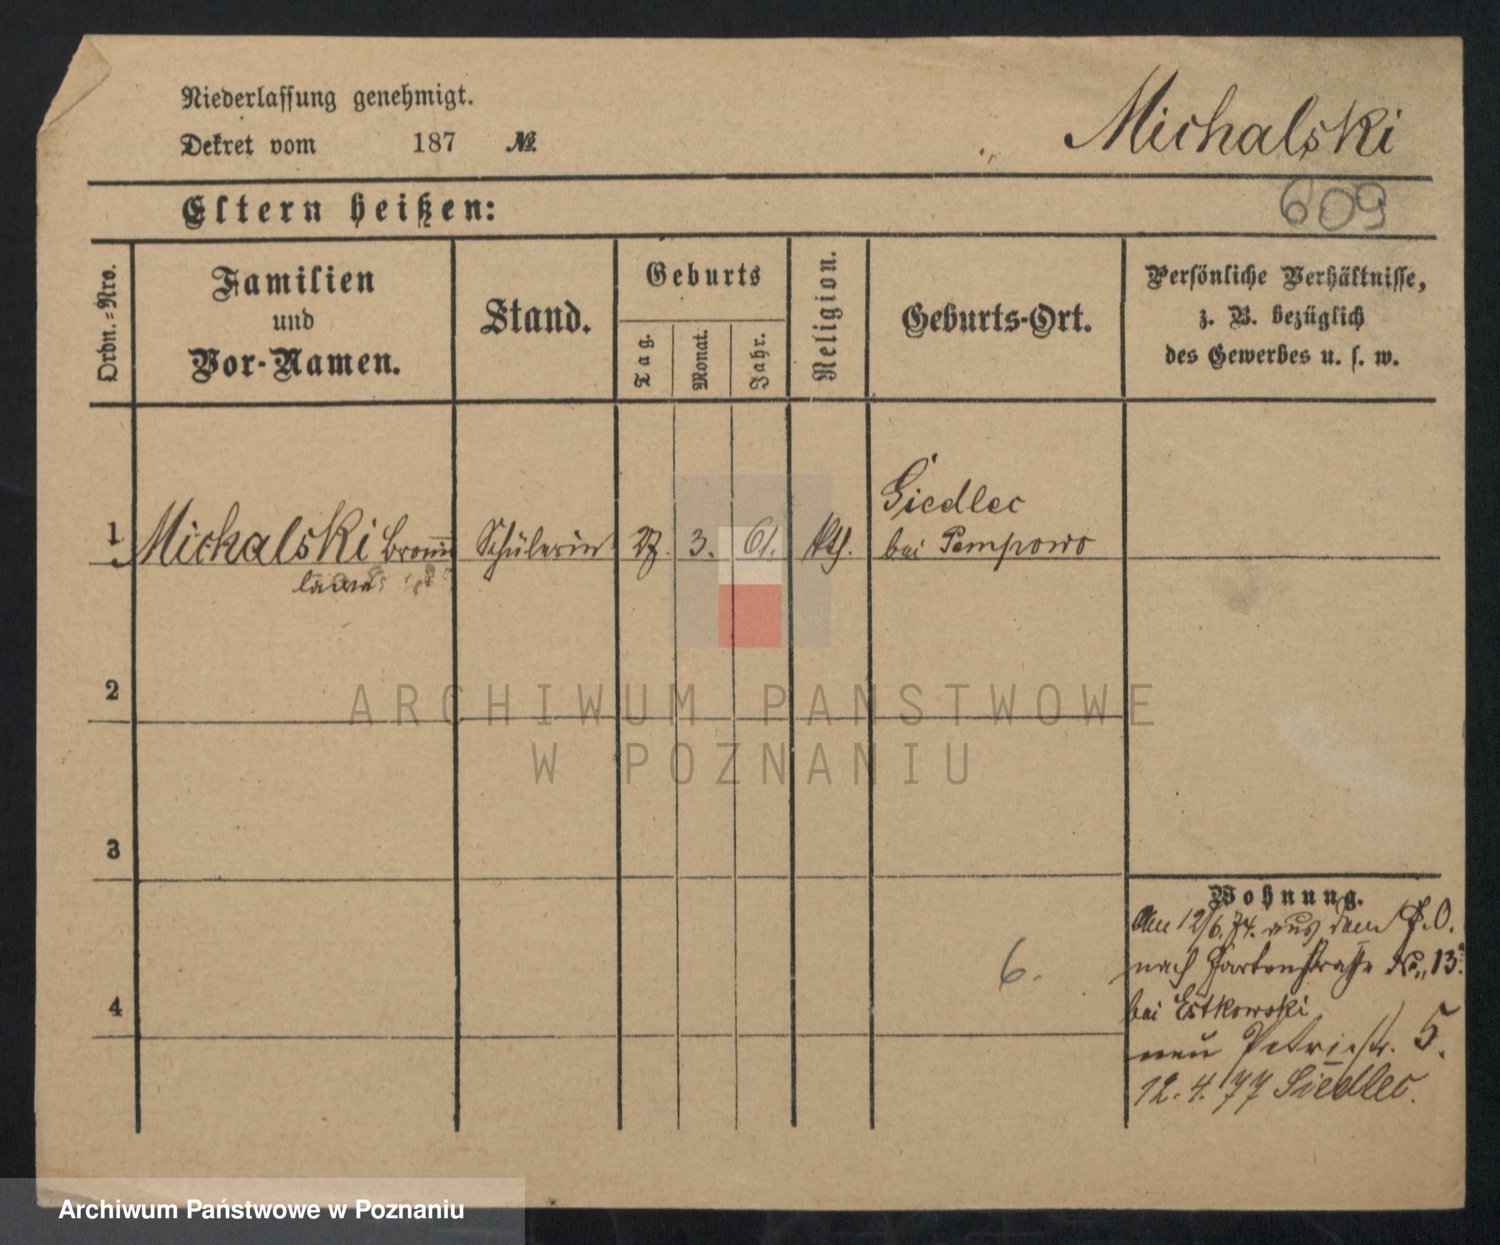 Niederlassung genehmigt.
Dekret vom 187 №
Michalski
609
Eltern heißen:
Ordn.-Nro.
Familien
und
Vor-Namen.
Stand.
Geburts
Tag.
Monat.
Jahr.
Religion.
Geburts-Ort.
Persönliche Verhältnisse,
z. B. bezüglich
des Gewerbes u. s. w.
1 Michalski Bronis
lawa
Schülerin
27. 3. 61. kth.
Siedlec
bei Pempowo
2
ARCHIWUM PAŃSTWOWE
W POZNANIU
3
4
6.
Wohnung.
Am 12/6.74. aus dem
nach Gartenstraße No. 13.
bei Estkowski
neu Petristr. 5.
12.4.77 Siedlec.
Archiwum Państwowe w Poznaniu